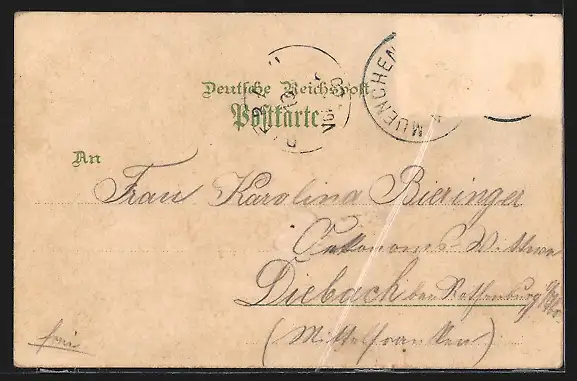 MUENCHEN
Deutsche Reichspost
Postkarte
An
Frau Karolina Bieringer
Oekonoms-Wittwe
Diebach bei Rothenburg
(Mittelfranken)
frei